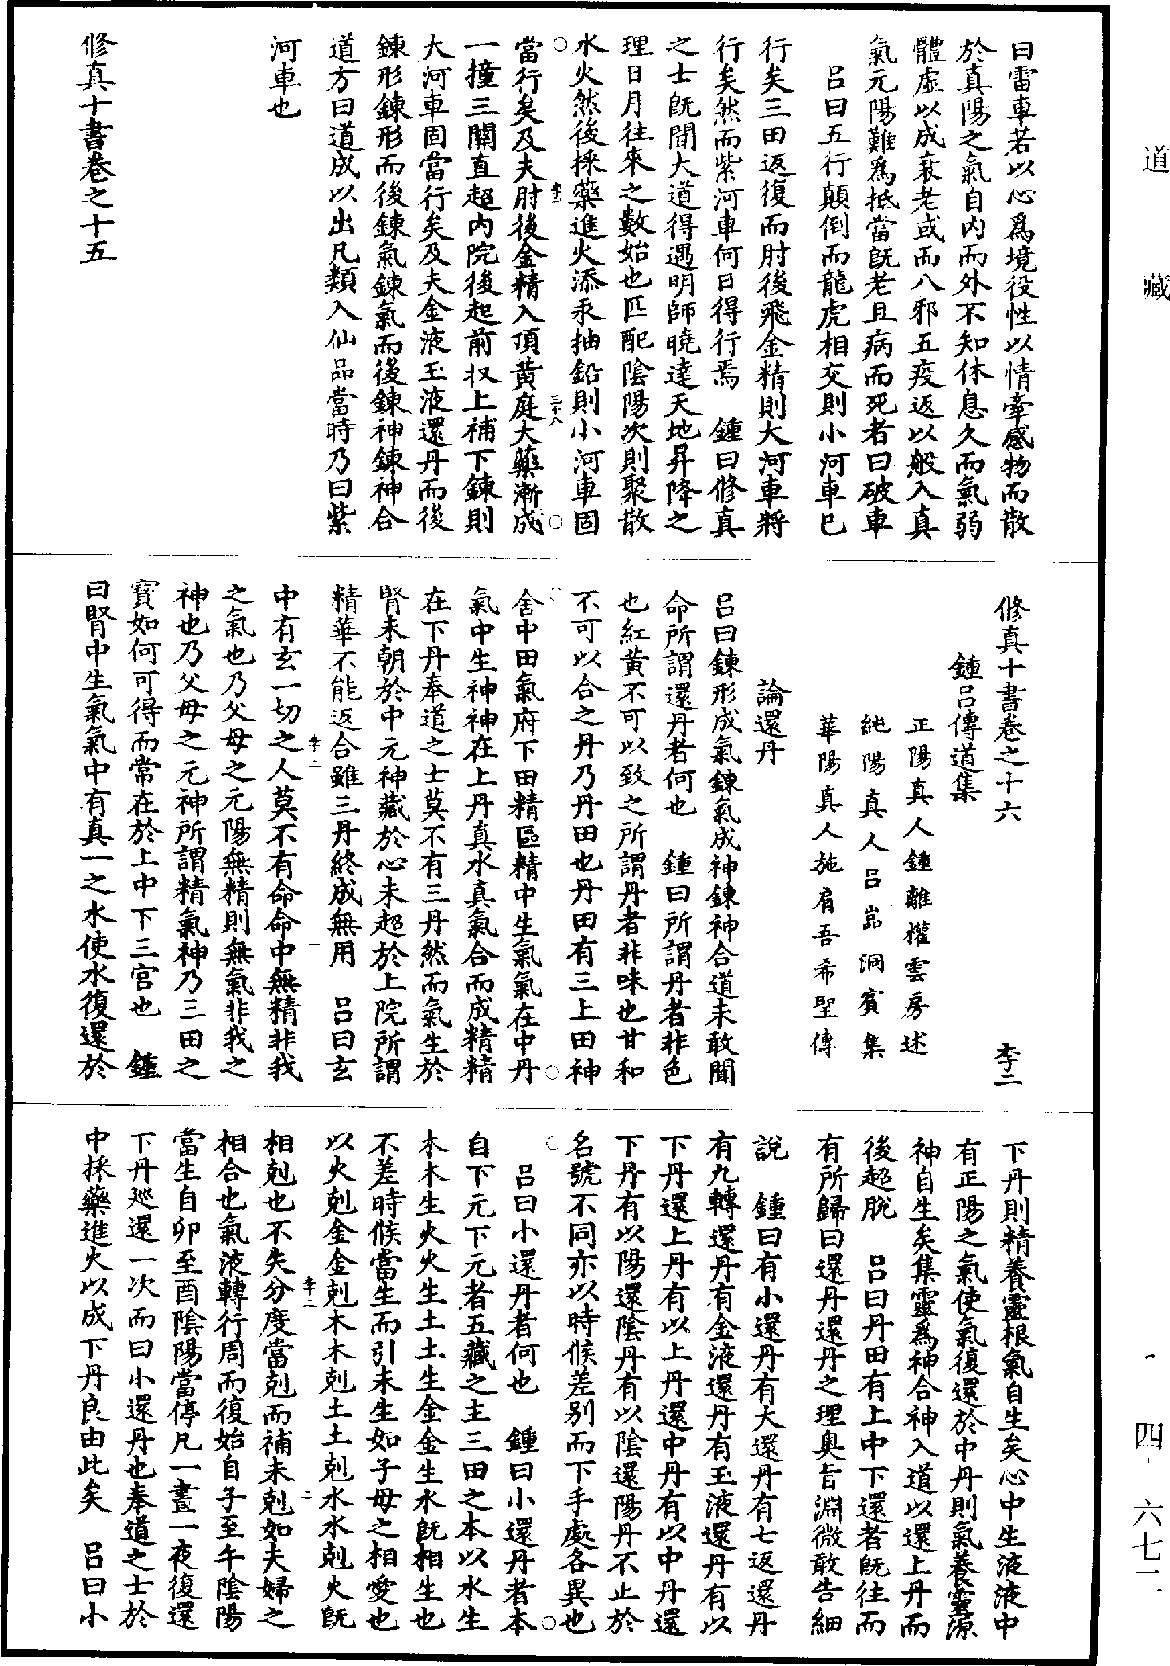 道藏
四·六七二
曰雷車若以心爲境役性以情牽感物而散
於真陽之氣自内而外不知休息久而氣弱
體虛以成衰老或而八邪五疫返以般入真
氣元陽難爲抵當既老且病而死者曰破車
吕曰五行顛倒而龍虎相交則小河車已
行矣三田返復而肘後飛金精則大河車將
行矣然而紫河車何日得行焉　鍾曰修真
之士既聞大道得遇明師曉達天地昇降之
理日月往來之數始也匹配陰陽次則聚散
水火然後採藥進火添汞抽鉛則小河車固
當行矣及夫肘後金精入頂黄庭大藥漸成
一撞三關直超内院後起前収上補下鍊則
大河車固當行矣及夫金液玉液還丹而後
鍊形鍊形而後鍊氣鍊氣而後鍊神鍊神合
道方曰道成以出凡類入仙品當時乃曰紫
河車也
修真十書卷之十五
修真十書卷之十六　李二
鍾吕傳道集
正陽真人鍾離權雲房述
純陽真人吕嵓洞賓集
華陽真人施肩吾希聖傳
論還丹
吕曰鍊形成氣鍊氣成神鍊神合道未敢聞
命所謂還丹者何也　鍾曰所謂丹者非色
也紅黄不可以致之所謂丹者非味也甘和
不可以合之丹乃丹田也丹田有三上田神
舍中田氣府下田精區精中生氣氣在中丹
氣中生神神在上丹真水真氣合而成精精
在下丹奉道之士莫不有三丹然而氣生於
腎未朝於中元神藏於心未超於上院所謂
精華不能返合雖三丹終成無用　吕曰玄
中有玄一切之人莫不有命命中無精非我
之氣也乃父母之元陽無精則無氣非我之
神也乃父母之元神所謂精氣神乃三田之
寳如何可得而常在於上中下三宫也　鍾
曰腎中生氣氣中有真一之水使水復還於
下丹則精養靈根氣自生矣心中生液液中
有正陽之氣使氣復還於中丹則氣養靈源
神自生矣集靈爲神合神入道以還上丹而
後超脱　吕曰丹田有上中下還者既往而
有所歸曰還丹還丹之理奥旨淵微敢告細
説　鍾曰有小還丹有大還丹有七返還丹
有九轉還丹有金液還丹有玉液還丹有以
下丹還上丹有以上丹還中丹有以中丹還
下丹有以陽還陰丹有以陰還陽丹不止於
名號不同亦以時候差别而下手處各異也
吕曰小還丹者何也　鍾曰小還丹者本
自下元下元者五藏之主三田之本以水生
木木生火火生土土生金金生水既相生也
不差時候當生而引未生如子母之相愛也
以火剋金金剋木木剋土土剋水水剋火既
相剋也不失分度當剋而補未剋如夫婦之
相合也氣液轉行周而復始自子至午陰陽
當生自卯至酉陰陽當停凡一晝一夜復還
下丹巡還一次而曰小還丹也奉道之士於
中採藥進火以成下丹良由此矣　吕曰小